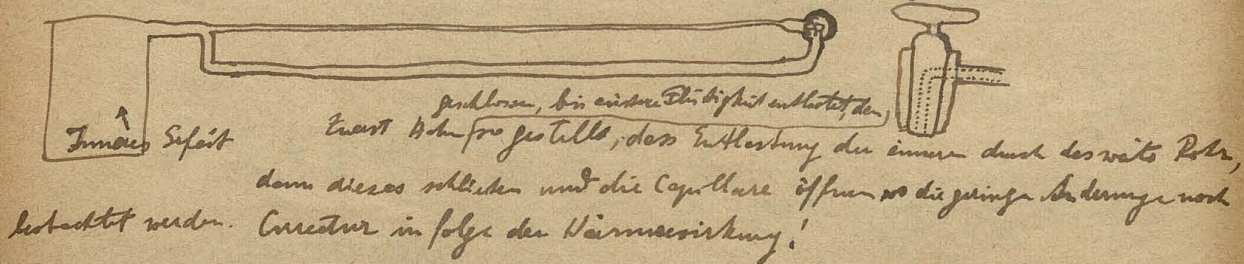 geschlossen, bis äussere Flüssigkeit entlastet, dann
Inneres Gefäß
Zuerst Hahn so gestellt, dass Entlastung der inneren durch das weite Rohr,
dann dieses schließen und die Capillare öffnen wo die geringe Änderunge noch
beobachtet werden. Correctur in folge der Wärmewirkung!